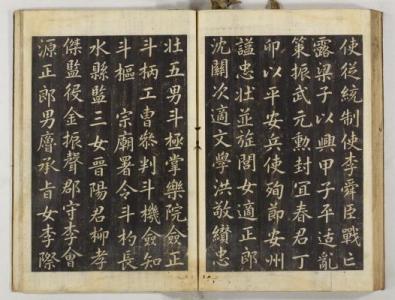 使從統制使李舜臣戰亡
露梁子以興甲子平适亂
策振武元勳封宜春君丁
卯以平安兵使殉節安州
諡忠壯並旌閭女適正郎
沈關次適文學洪敬纘忠
壯五男斗極掌樂院僉正
斗柄工曹叅判斗機僉知
斗樞 宗廟署令斗杓長
水縣監三女晉陽君柳孝
傑監役金振聲郡守李會
源正郎男廥承旨女李際